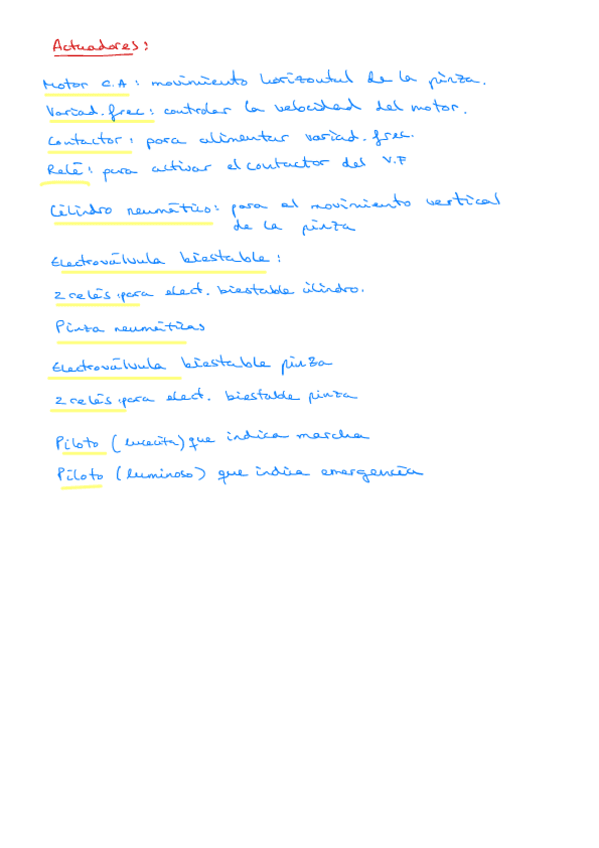 Actuadores:
Motor C.A: movimiento horizontal de la pinza.
Variad. frec: controlar la velocidad del motor.
Contactor: para alimentar variad. frec.
Relé: para activar el contactor del V.F
Cilindro neumático: para el movimiento vertical
de la pinza
Electroválvula biestable:
2 relés para elect. biestable cilindro.
Pinza neumáticas
Electroválvula biestable pinza
2 relés para elect. biestable pinza
Piloto (lucecita) que indica marcha
Piloto (luminoso) que indica emergencia